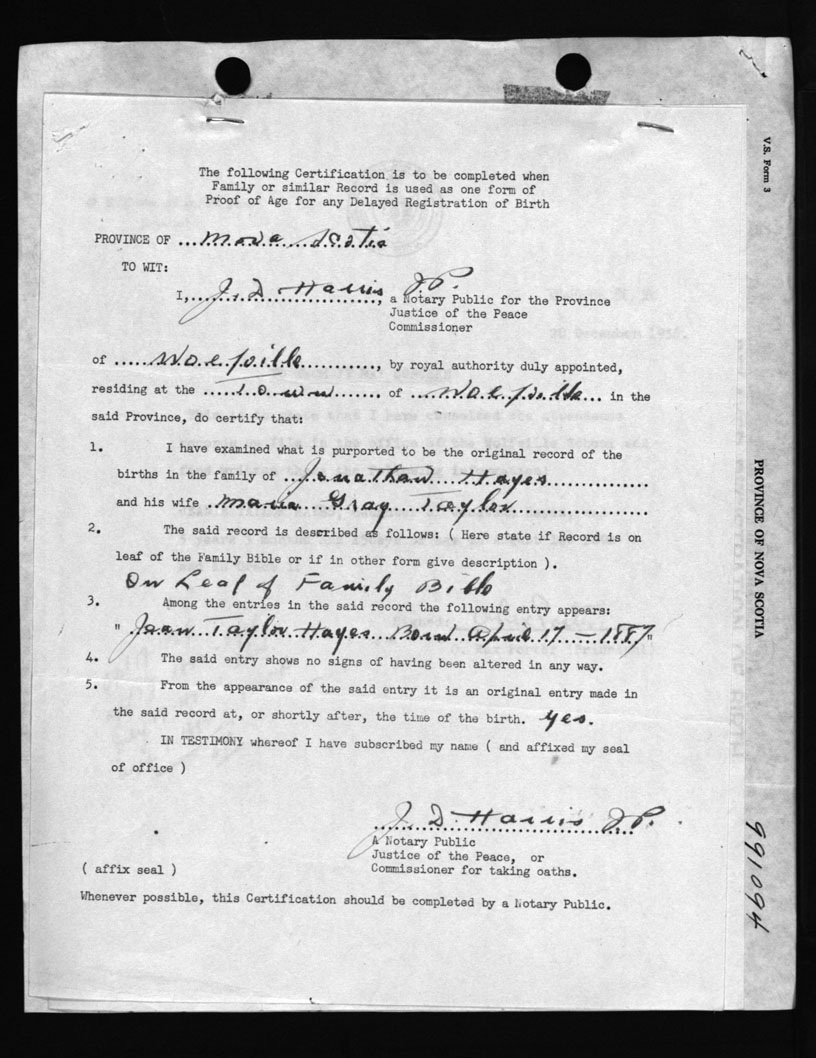 The following Certification is to be completed when
Family or similar Record is used as one form of
Proof of Age for any Delayed Registration of Birth
PROVINCE OF ...Nova Scotia
TO WIT:
I,...J. D Harris JP..., a Notary Public for the Province
Justice of the Peace
Commissioner
of .....Wolfville............, by royal authority duly appointed,
residing at the ....Town....... of ...Wolfville... in the
said Province, do certify that:
1. I have examined what is purported to be the original record of the
births in the family of ..Jonathan...Hayes...............
and his wife ..Maria Gray Taylor....................
2. The said record is described as follows: ( Here state if Record is on
leaf of the Family Bible or if in other form give description ).
On Leaf of Family Bible
3. Among the entries in the said record the following entry appears:
" Taylor Hayes Born April 17 - 1887 "
4. The said entry shows no signs of having been altered in any way.
5. From the appearance of the said entry it is an original entry made in
the said record at, or shortly after, the time of the birth. yes.
IN TESTIMONY whereof I have subscribed my name ( and affixed my seal
of office )
J. D. Harris JP.
A Notary Public
Justice of the Peace, or
Commissioner for taking oaths.
( affix seal )
Whenever possible, this Certification should be completed by a Notary Public.
V.S. Form 3
PROVINCE OF NOVA SCOTIA
991094